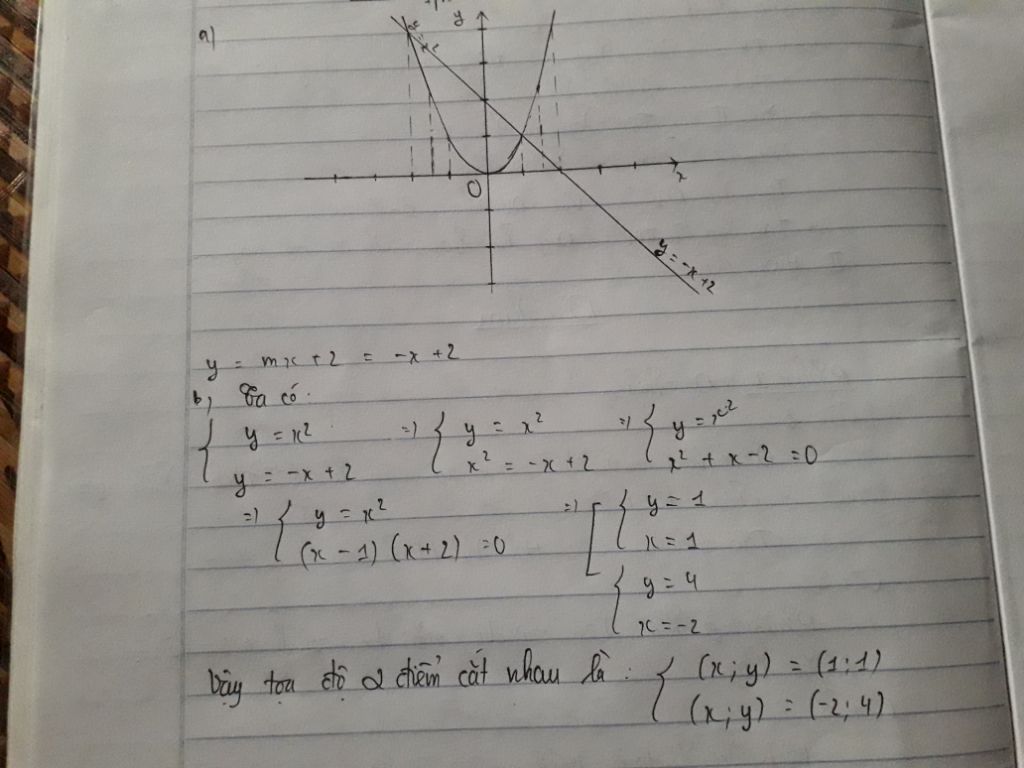 a)
y
y = x²
O
x
y = -x+2
y = mx + 2 = -x + 2
b, Ta có:
{ y = x² => { y = x² => { y = x²
y = -x + 2 x² = -x + 2 x² + x - 2 = 0
=> { y = x² => [ { y = 1
(x - 1) (x + 2) = 0 x = 1
{ y = 4
x = -2
Vậy tọa độ 2 điểm cắt nhau là : { (x; y) = (1; 1)
(x; y) = (-2; 4)